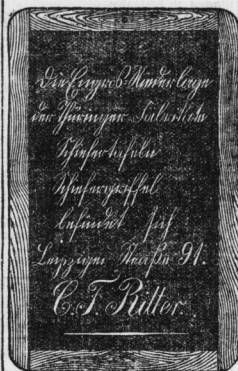 Die Engros-Niederlage
der Thüringer
Schiefertafeln
Schiefergriffel
befindet sich
Leipziger Straße 91.
C. F. Ritter.